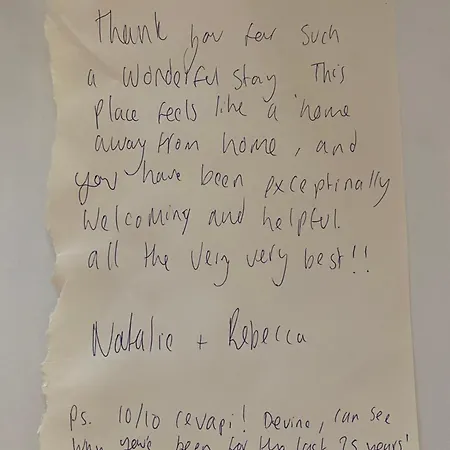 Thank you for such
a wonderful stay. This
place feels like a 'home
away from home, and
you have been exceptinally
welcoming and helpful.
all the very very best!!
Natalie + Rebecca
Ps. 10/10 cevapi! Devine, can see
why been for the last 25 years'